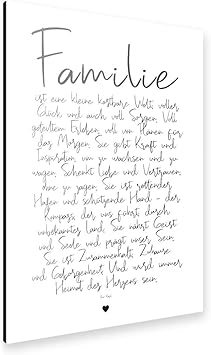 Familie
ist eine kleine kostbare Welt, voller
Glück und auch voll Sorgen. Voll
gelebtem Erleben, voll von Plänen für
das Morgen. Sie gibt Kraft und
Inspiration um zu wachsen und zu
wagen. Schenkt Liebe und Vertrauen,
ohne zu sagen. Sie ist rettender
Hafen und schützende Hand - der
Kompass, der uns führt, durch
unbekanntes Land. Sie nährt Geist
und Seele und prägt unser Sein.
Sie ist Zusammenhalt, Zuhause
und Geborgenheit. Und wird immer
Heimat des Herzens sein.